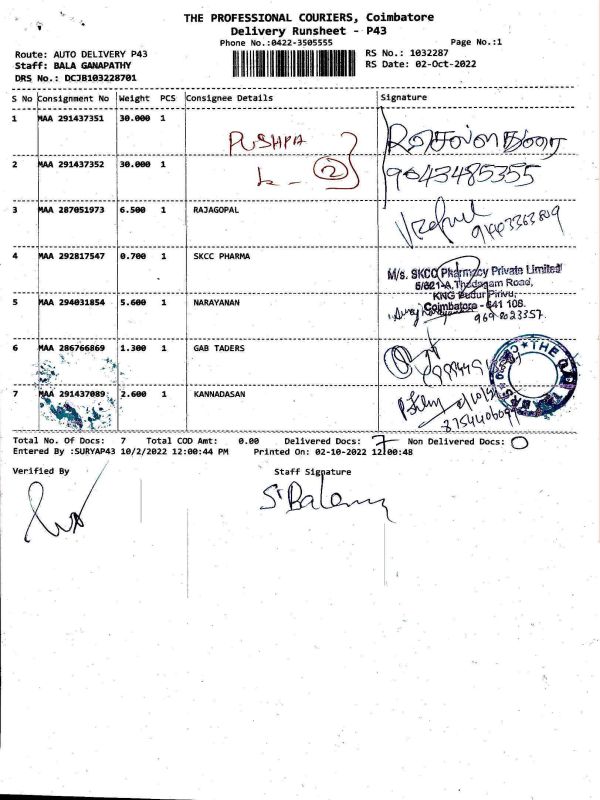 THE PROFESSIONAL COURIERS, Coimbatore
Delivery Runsheet - P43
Phone No.:0422-3505555 Page No.:1
Route: AUTO DELIVERY P43 RS No.: 1032287
Staff: BALA GANAPATHY RS Date: 02-Oct-2022
DRS No.: DCJB103228701
S No Consignment No Weight PCS Consignee Details Signature
1 MAA 291437351 30.000 1
PUSHPA
2 MAA 291437352 30.000 1 2 9043485355
3 MAA 287051973 6.500 1 RAJAGOPAL
4 MAA 292817547 0.700 1 SKCC PHARMA
M/s. SKCC Pharmacy Private Limited
5/621-A, Thadagam Road,
KNG Pudur Pirivu,
5 MAA 294031854 5.600 1 NARAYANAN Coimbatore - 641 108.
9698023357
6 MAA 286766869 1.300 1 GAB TADERS
7 MAA 291437089 2.600 1 KANNADASAN
Total No. Of Docs: 7 Total COD Amt: 0.00 Delivered Docs: 7 Non Delivered Docs: 0
Entered By :SURYAP43 10/2/2022 12:00:44 PM Printed On: 02-10-2022 12:00:48
Verified By Staff Signature